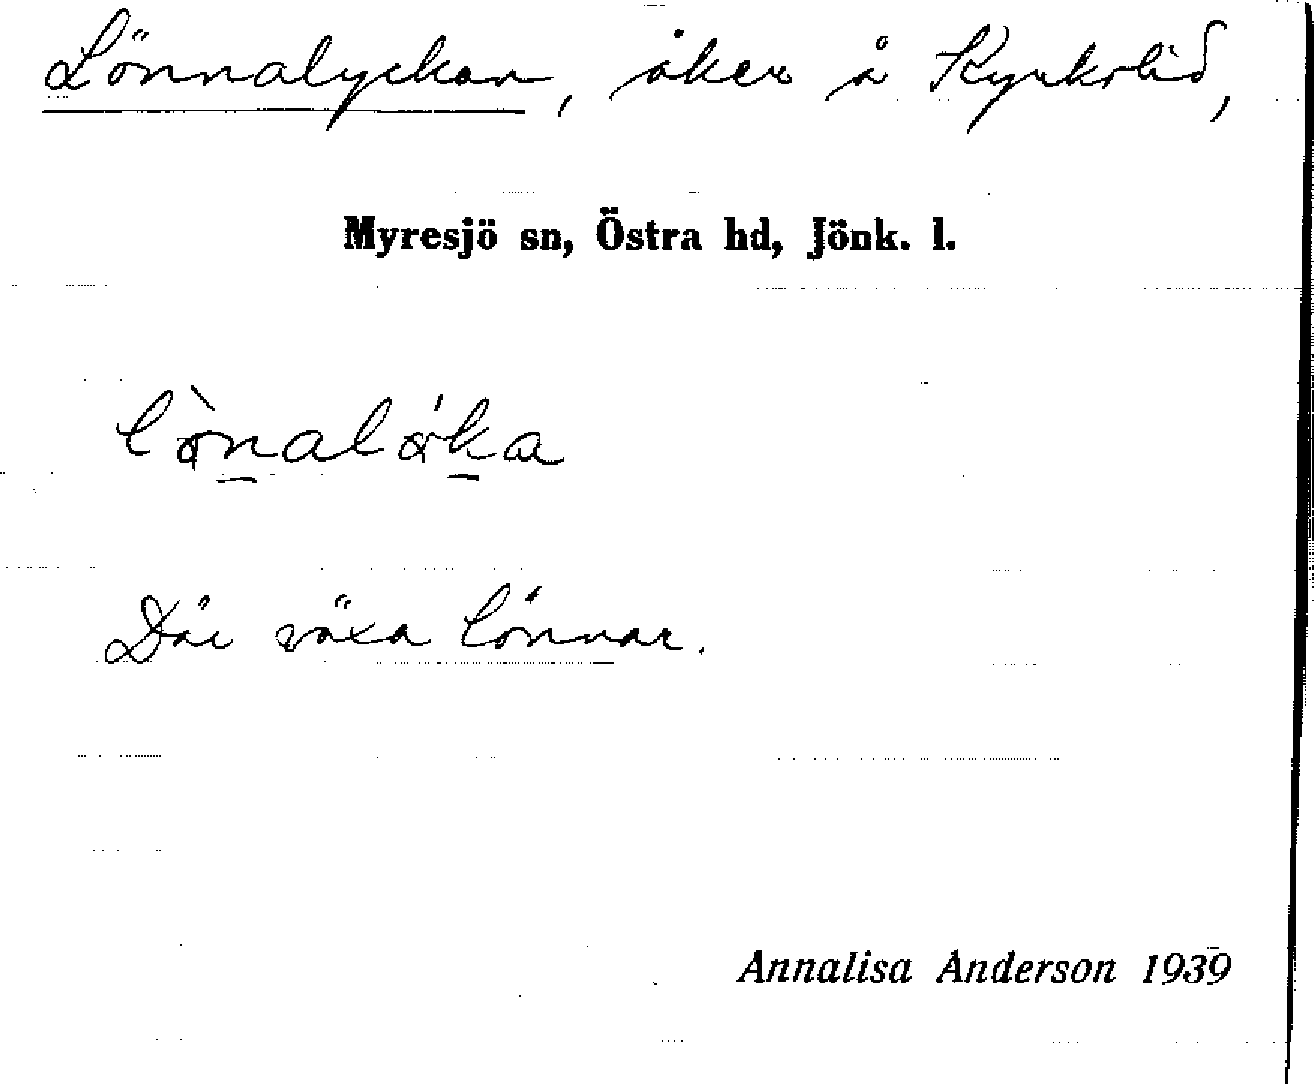 Lönnalyckan, åker å Kyrkolid,
Myresjö sn, Östra hd, Jönk. l.
Där växa lönnar.
Annalisa Anderson 1939